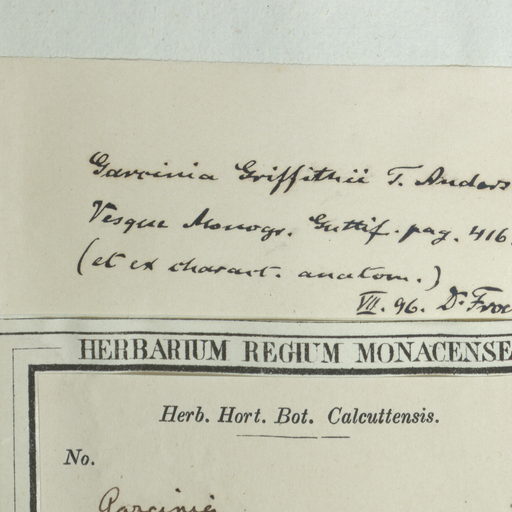 Garcinia Griffithii T. Anders
Vesque Monogr. Guttif. pag. 416.
(et ex charact. anatom.)
VII. 96. Dr. Froe
HERBARIUM REGIUM MONACENSE
Herb. Hort. Bot. Calcuttensis.
No.
Garcinia